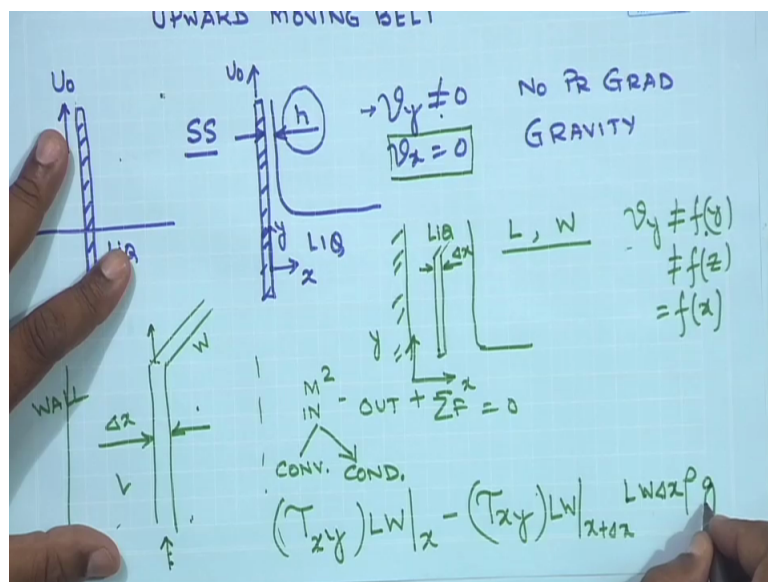 UPWARD MOVING BELT
U₀
U₀
SS
h
→ v_y ≠ 0
v_x = 0
NO PR GRAD
GRAVITY
LIQ
y LIQ
x
LIQ
Δx
L, W
v_y ≠ f(y)
≠ f(z)
= f(x)
y
x
WALL
W
Δx
L
M²
IN - OUT + ΣF = 0
CONV. COND.
(τ_xy) LW|_x - (τ_xy) LW|_x+Δx LWΔx ρ g